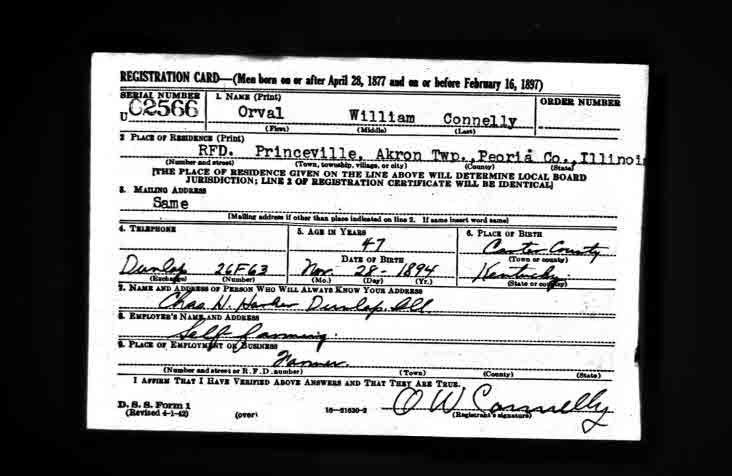 REGISTRATION CARD—(Men born on or after April 28, 1877 and on or before February 16, 1897)
SERIAL NUMBER 1. NAME (Print) ORDER NUMBER
U C2566 Orval William Connelly
(First) (Middle) (Last)
2 PLACE OF RESIDENCE (Print)
RFD. Princeville, Akron Twp., Peoria Co., Illinoi
(Number and street) (Town, township, village, or city) (County) (State)
[THE PLACE OF RESIDENCE GIVEN ON THE LINE ABOVE WILL DETERMINE LOCAL BOARD
JURISDICTION; LINE 2 OF REGISTRATION CERTIFICATE WILL BE IDENTICAL]
3. MAILING ADDRESS
Same
[Mailing address if other than place indicated on line 2. If same insert word same]
4. TELEPHONE 5. AGE IN YEARS 6. PLACE OF BIRTH
47 Carter County
DATE OF BIRTH (Town or county)
Dunlap 26F63 Nov. 28 - 1894 Kentucky.
(Exchange) (Number) (Mo.) (Day) (Yr.) (State or country)
7. NAME AND ADDRESS OF PERSON WHO WILL ALWAYS KNOW YOUR ADDRESS
Chas. Dunlap, Ill.
8. EMPLOYER'S NAME AND ADDRESS
Self farming.
9. PLACE OF EMPLOYMENT OR BUSINESS
Farmer.
(Number and street or R. F. D. number) (Town) (County) (State)
I AFFIRM THAT I HAVE VERIFIED ABOVE ANSWERS AND THAT THEY ARE TRUE.
O W Connelly
D. S. S. Form 1
(Revised 4-1-42) (over) 16—21630-2 (Registrant's signature)